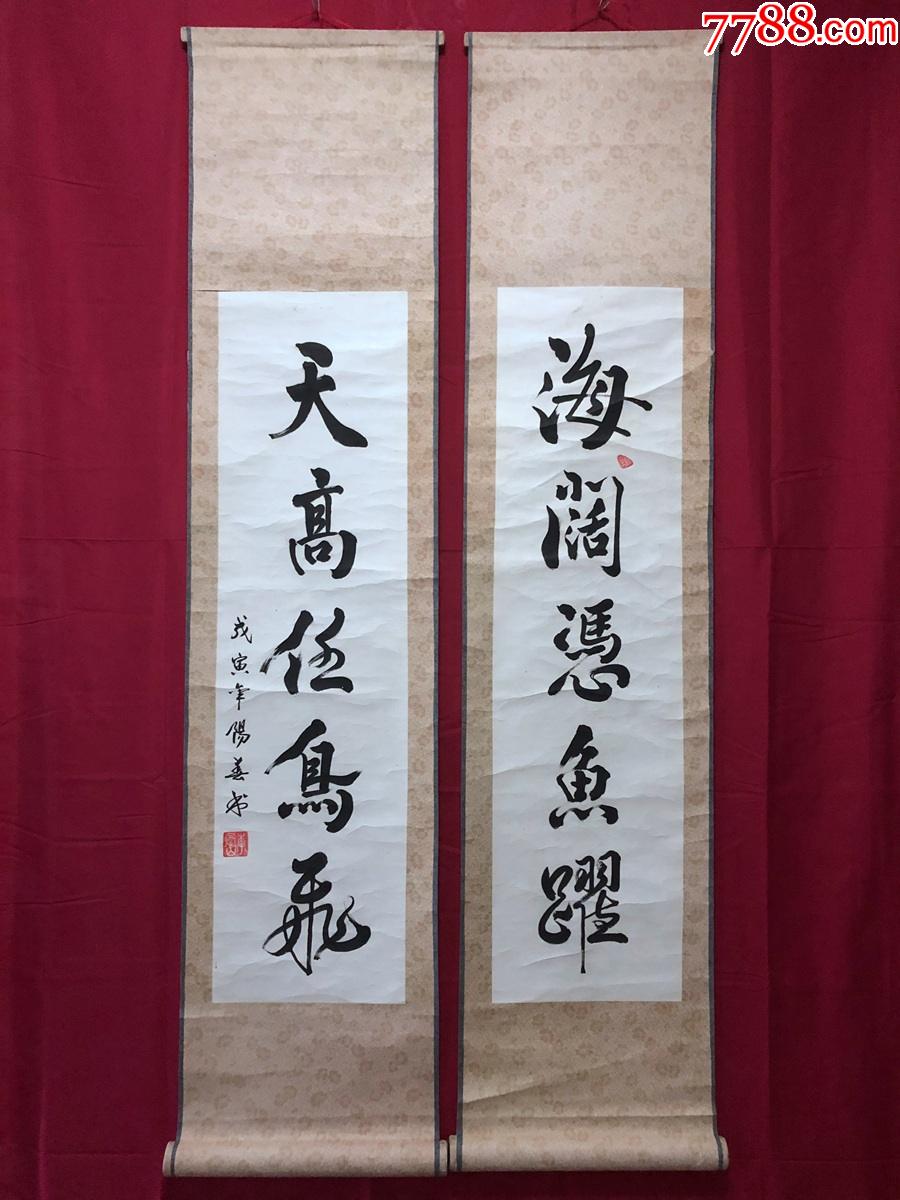 7788.com
海闊憑魚躍
天高任鳥飛
戊寅年陽春書